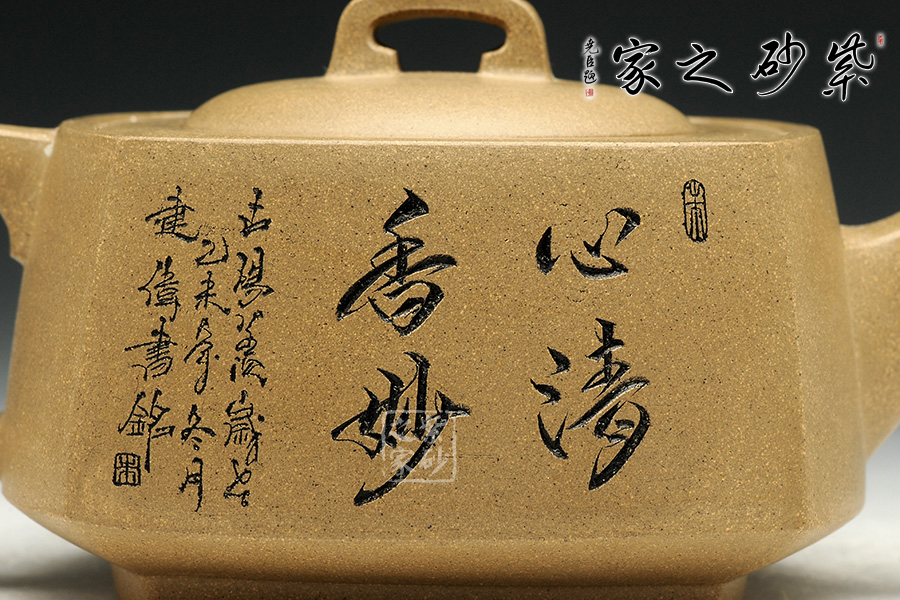 紫砂之家
心清
香妙
古陽羨歲在
乙未年冬月
建偉書銘